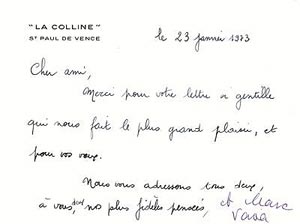 "LA COLLINE"
ST PAUL DE VENCE
le 23 janvier 1973
Cher ami,
Merci pour votre lettre si gentille
qui nous fait le plus grand plaisir, et
pour vos vœux.
Nous vous adressons tous deux,
à vous, nos plus fidèles pensées,
et Marc
Vava